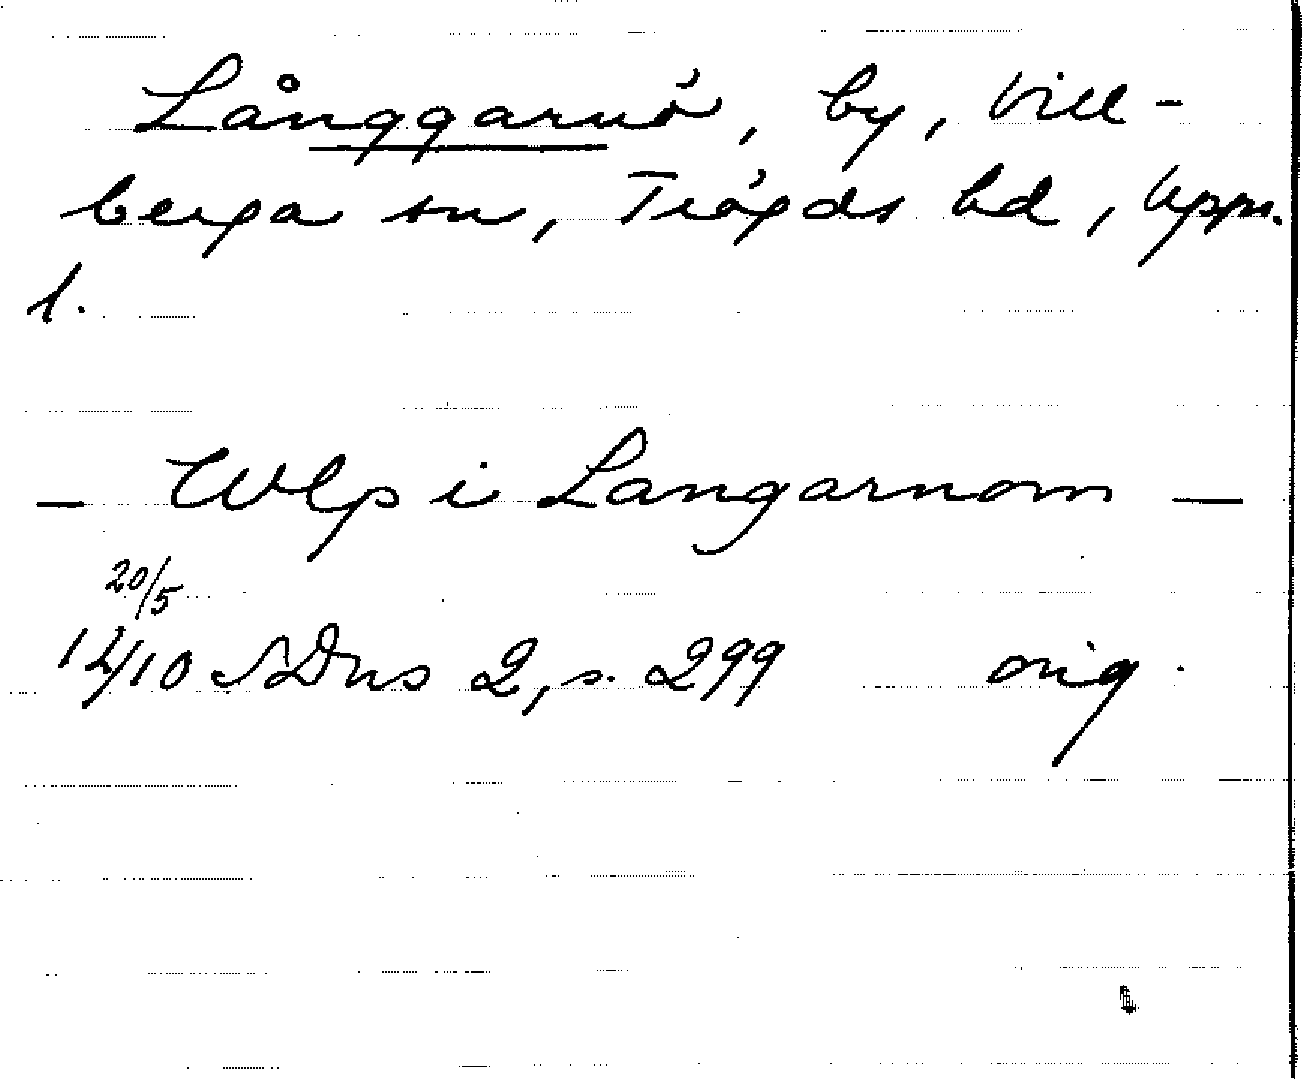 Långgarnö, by, Vill-
berga sn, Trögds hd, Upps.
l.
— Wlp i Langarnom —
20/5
1410 SDns 2, s. 299 orig.